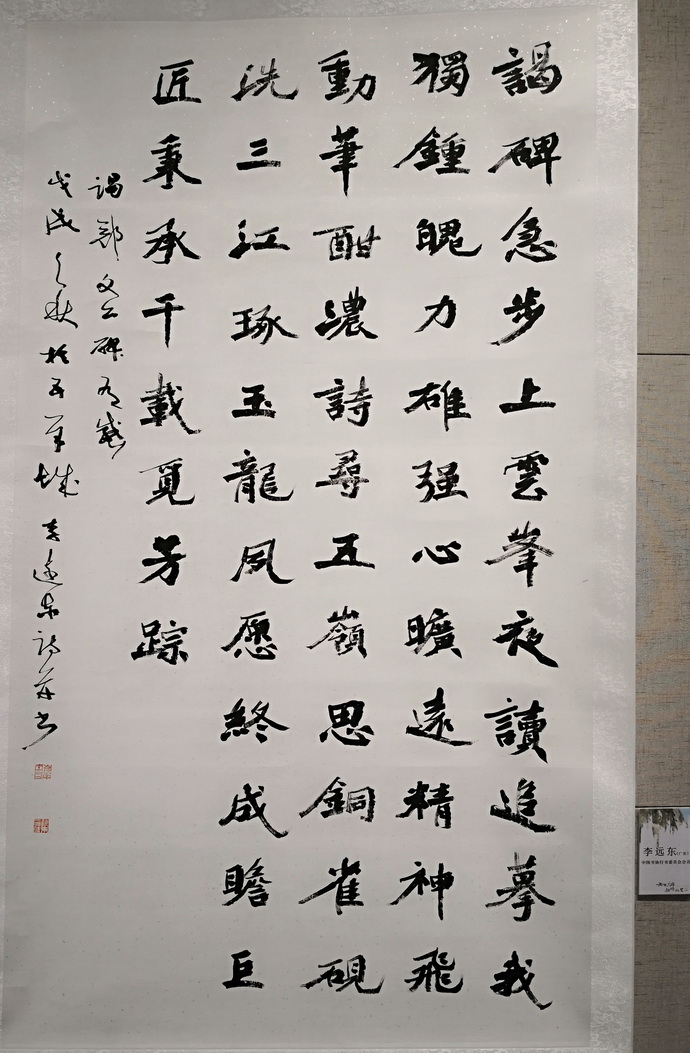 謁碑急步上雲峯夜讀追摹我
獨鍾魄力雄强心曠遠精神飛
動筆酣濃詩尋五嶺思銅雀硯
洗三江琢玉龍夙愿終成瞻巨
匠秉承千載覓芳踪
謁鄭文公碑有感
戊戌之秋於五羊城李遠東詩并書
李远东